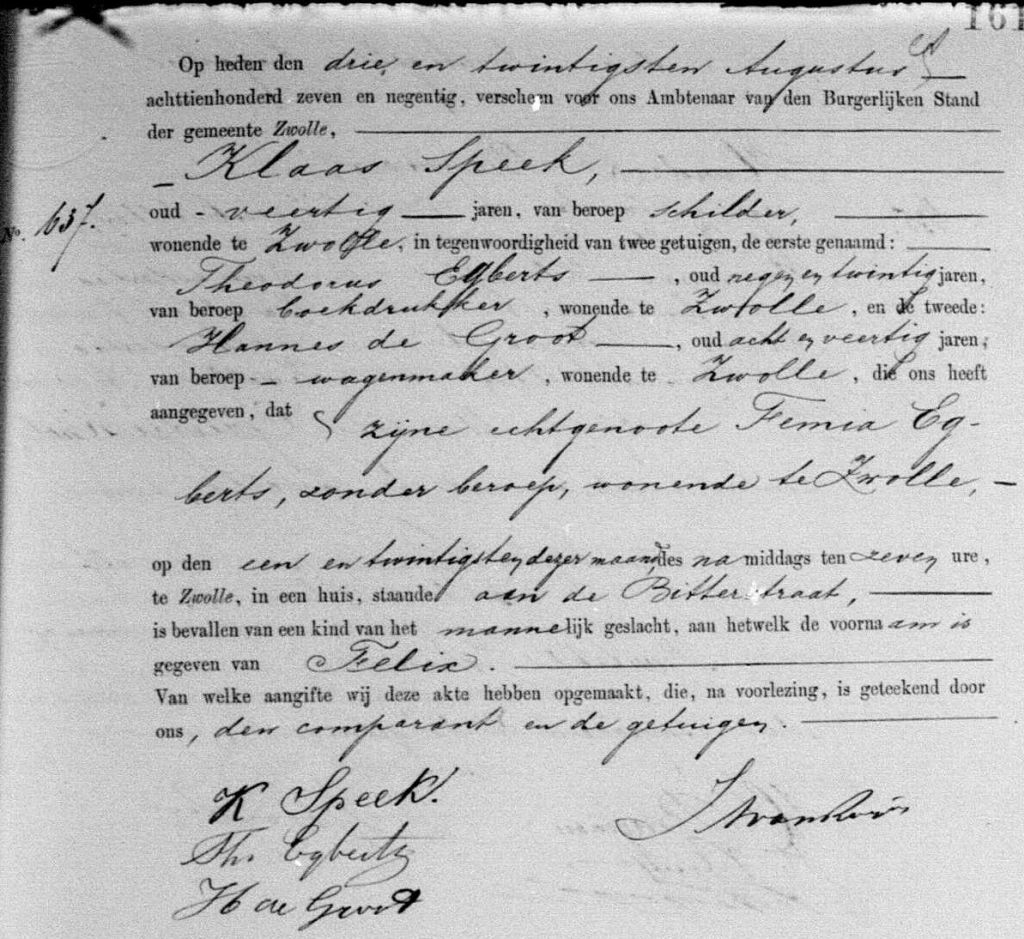 161
Op heden den drie en twintigsten Augustus
achttienhonderd zeven en negentig, verscheen voor ons Ambtenaar van den Burgerlijken Stand
der gemeente Zwolle,
Klaas Speek,
No. 637.
oud veertig jaren, van beroep schilder,
wonende te Zwolle, in tegenwoordigheid van twee getuigen, de eerste genaamd:
Theodorus Egberts, oud negen en twintig jaren,
van beroep boekdrukker, wonende te Zwolle, en de tweede:
Hannes de Groot, oud acht en veertig jaren,
van beroep wagenmaker, wonende te Zwolle, die ons heeft
aangegeven, dat zijne echtgenoote Femia Eg-
berts, zonder beroep, wonende te Zwolle,
op den een en twintigsten dezer maand des namiddags ten zeven ure,
te Zwolle, in een huis, staande aan de Bitterstraat,
is bevallen van een kind van het mannelijk geslacht, aan hetwelk de voornaam is
gegeven van Felix.
Van welke aangifte wij deze akte hebben opgemaakt, die, na voorlezing, is geteekend door
ons, den comparant en de getuigen.
K Speek.
Th. Egberts
H de Groot